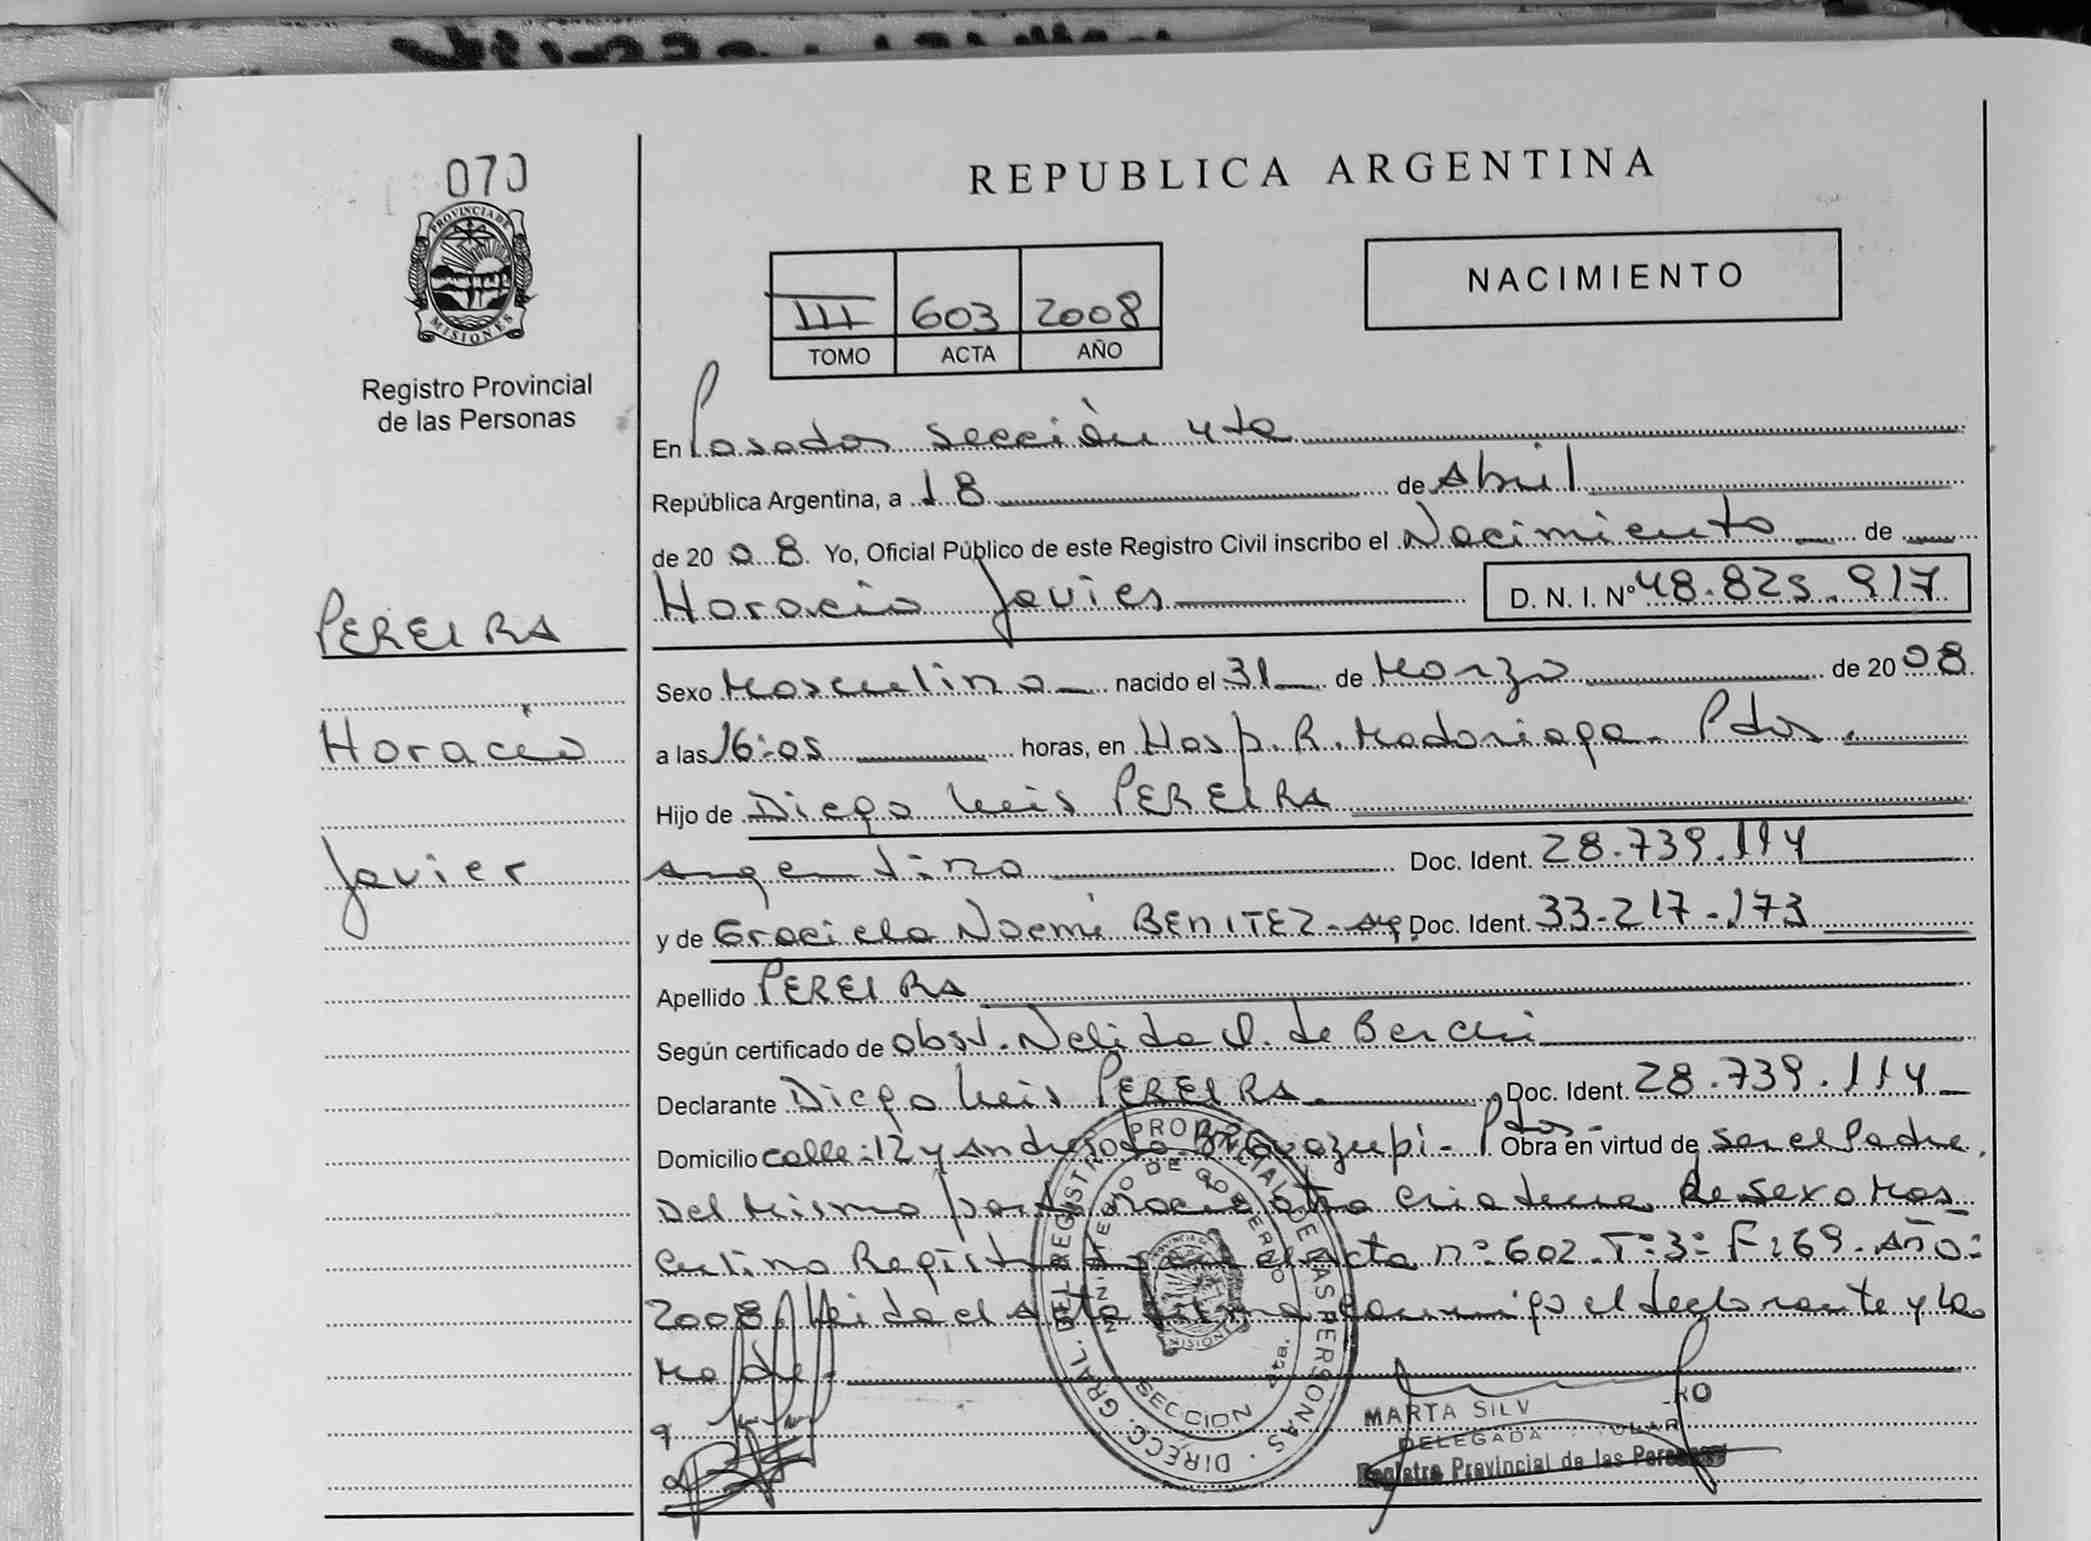 070
PROVINCIA DE
MISIONES
Registro Provincial
de las Personas
REPUBLICA ARGENTINA
NACIMIENTO
III 603 2008
TOMO ACTA AÑO
En Posadas sección 4ta
República Argentina, a 18 de Abril
de 20 08. Yo, Oficial Público de este Registro Civil inscribo el Nacimiento de
Horacio Javier D. N. I. Nº 48.825.917
PEREIRA
Horacio
Javier
Sexo Masculino nacido el 31 de Marzo de 20 08.
a las 16:05 horas, en Hosp. R. Madariaga - Pdas.
Hijo de Diego Luis PEREIRA
Argentino Doc. Ident. 28.739.114
y de Graciela Noemí BENITEZ - Arg. Doc. Ident. 33-217-173
Apellido PEREIRA
Según certificado de obst. Nelida de
Declarante Diego Luis PEREIRA. Doc. Ident. 28.739.114
Domicilio calle: 12 y - Pdas - Obra en virtud de ser el Padre.
Del mismo parto nacio otra criatura de sexo Mas
culino Registrada en el acta nº 602 - Tº 3º F: 69 - Año:
2008. Leida el Acta firma conmigo el declarante y la
Madre.
DIREC. GRAL. DEL REGISTRO PROVINCIAL DE LAS PERSONAS
MINISTERIO DE GOBIERNO
SECCION 4ta.
PROVINCIA DE
MISIONES
MARTA SILV
DELEGADA
Registro Provincial de las Personas